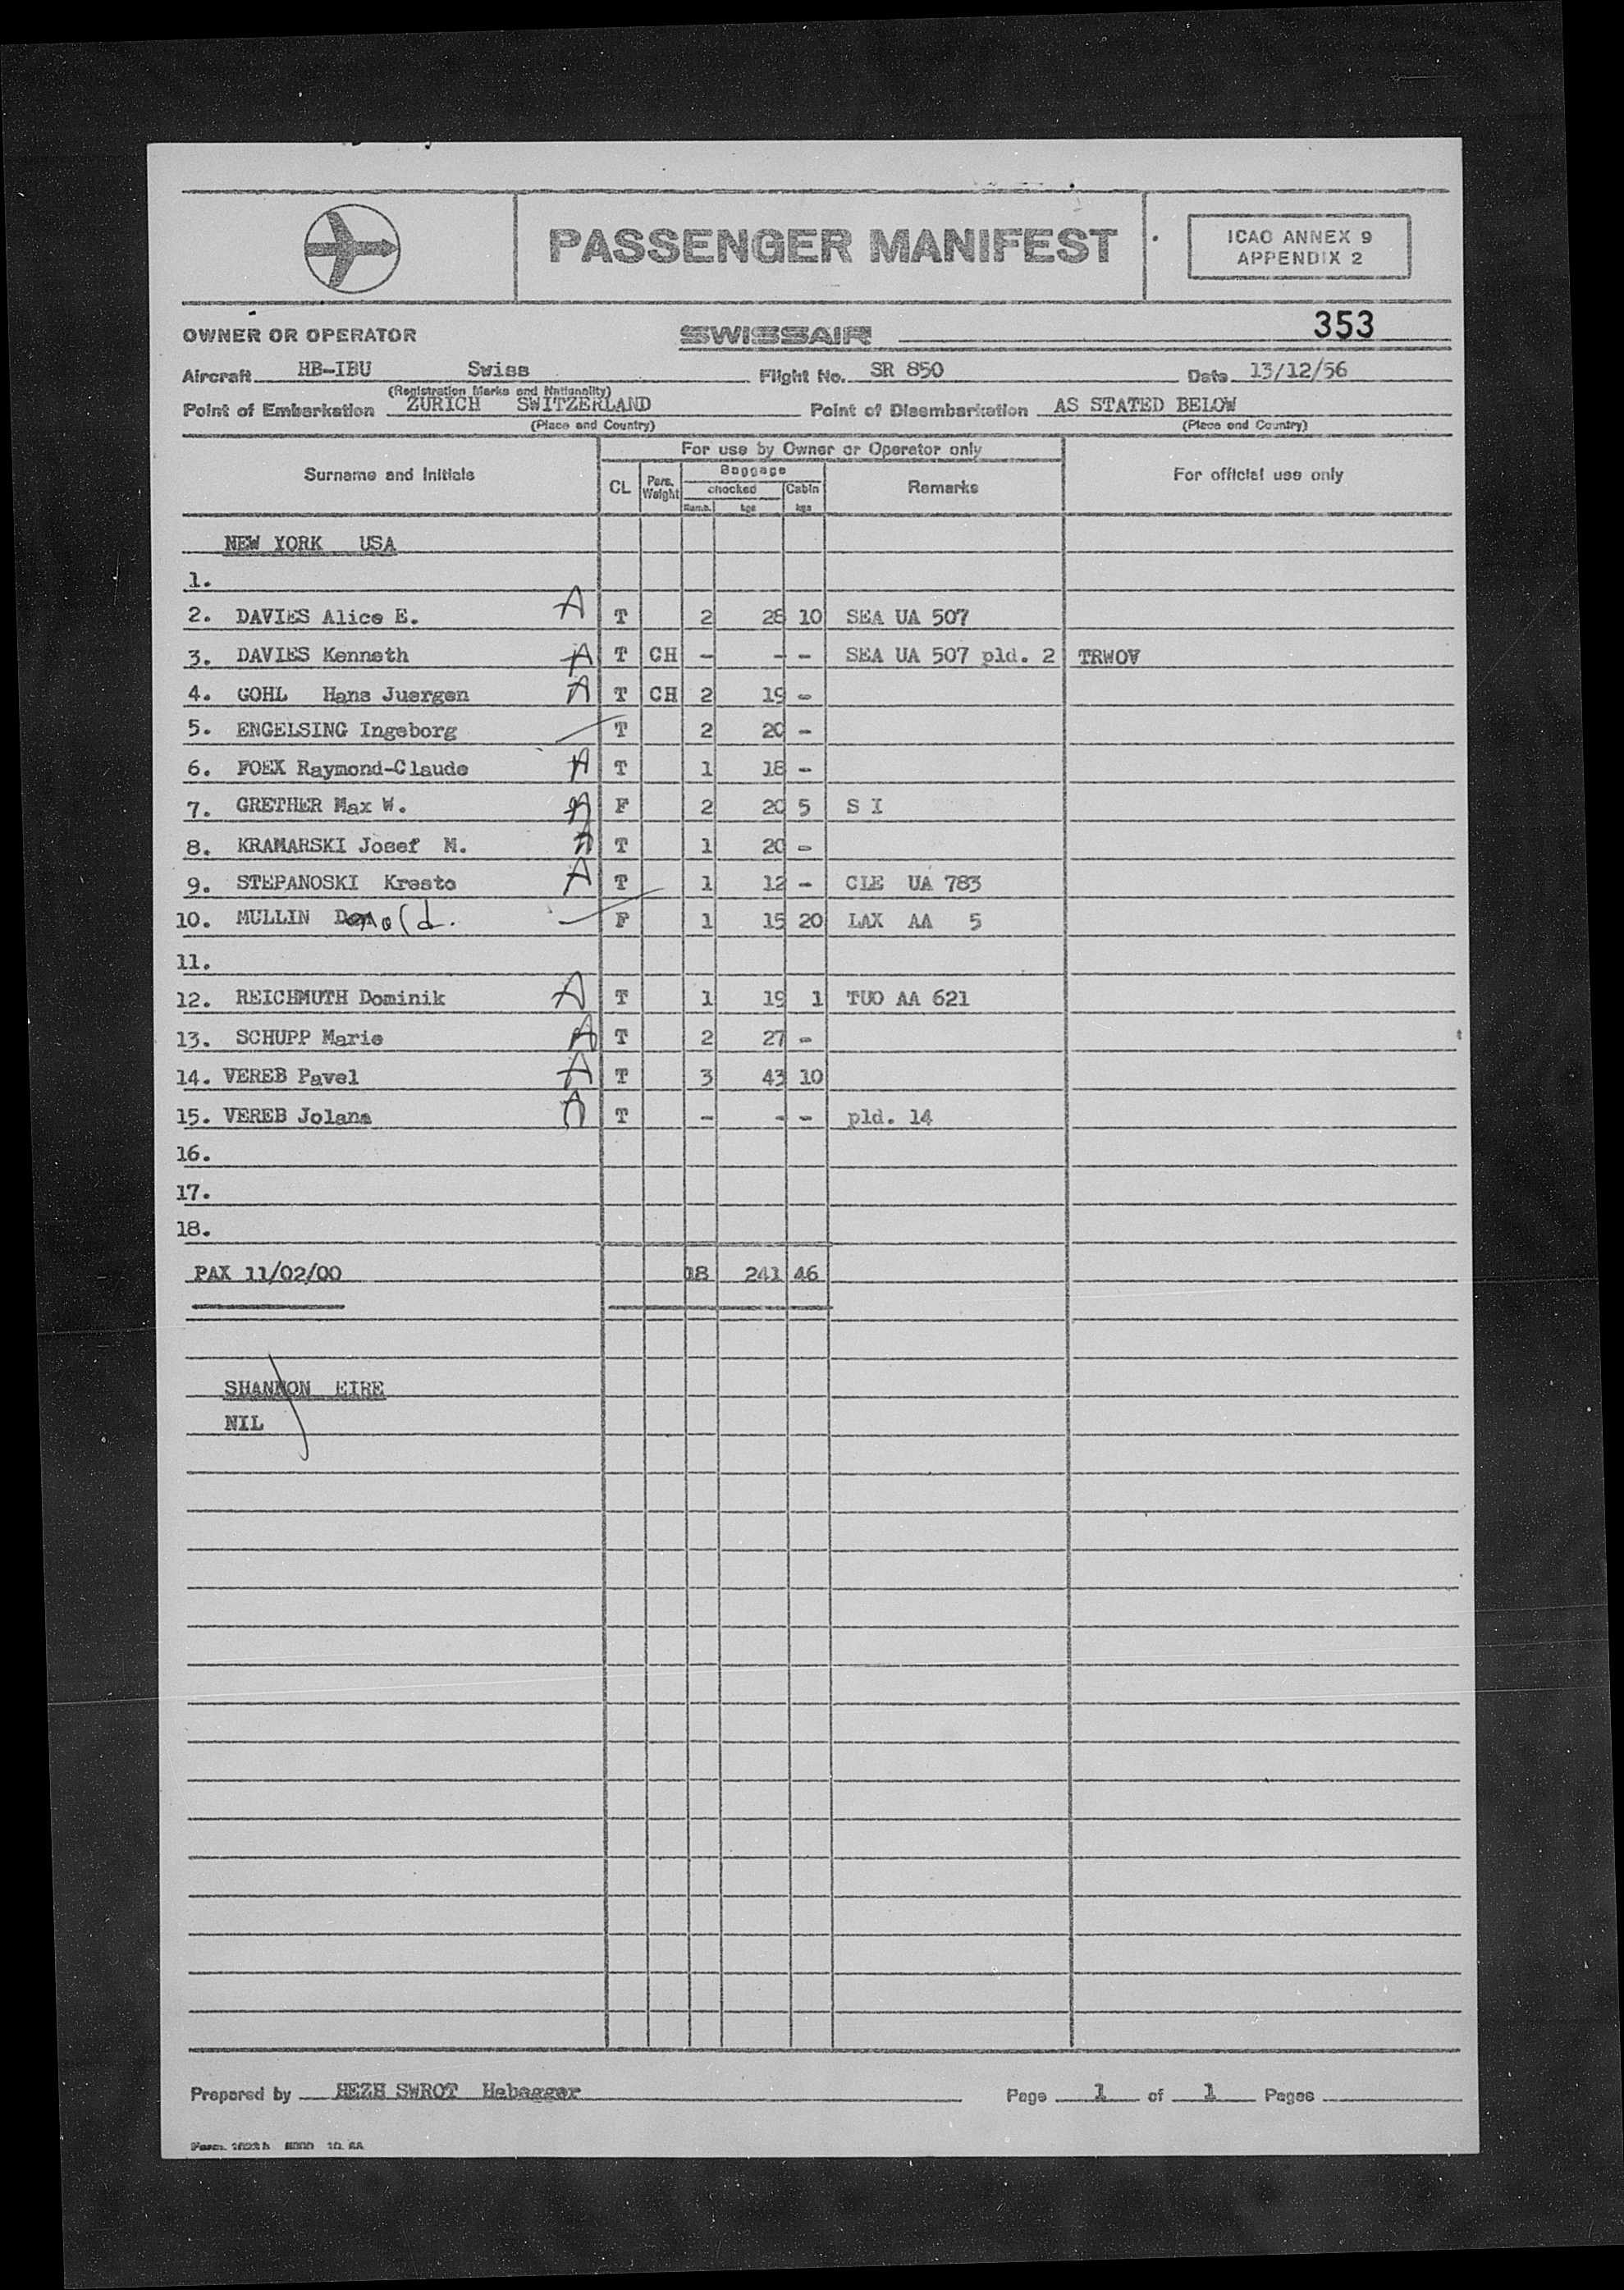 PASSENGER MANIFEST
ICAO ANNEX 9
APPENDIX 2
353
OWNER OR OPERATOR SWISSAIR
Aircraft HB-IBU Swiss Flight No. SR 850 Date 13/12/56
(Registration Marks and Nationality)
Point of Embarkation ZURICH SWITZERLAND Point of Disembarkation AS STATED BELOW
(Place and Country) (Place and Country)
For use by Owner or Operator only
Surname and Initials CL Pers. Weight Baggage checked Cabin Remarks For official use only
Numb. kgs kgs
NEW YORK USA
1.
2. DAVIES Alice E. A T 2 28 10 SEA UA 507
3. DAVIES Kenneth A T CH - - - SEA UA 507 pld. 2 TRWOV
4. GOHL Hans Juergen A T CH 2 19 -
5. ENGELSING Ingeborg T 2 20 -
6. FOEX Raymond-Claude A T 1 18 -
7. GRETHER Max W. A F 2 20 5 S I
8. KRAMARSKI Josef M. A T 1 20 -
9. STEPANOSKI Kresto A T 1 12 - CLE UA 783
10. MULLIN Donald. F 1 15 20 LAX AA 5
11.
12. REICHMUTH Dominik A T 1 19 1 TUO AA 621
13. SCHUPP Marie A T 2 27 -
14. VEREB Pavel A T 3 43 10
15. VEREB Jolana A T - - - pld. 14
16.
17.
18.
PAX 11/02/00 18 241 46
SHANNON EIRE
NIL
Prepared by HEZH SWROT Habegger Page 1 of 1 Pages